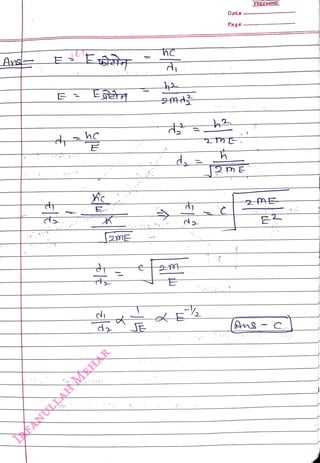 Date
Page
Ans- E = E फोटोन = hc/d₁
E = E प्रोटोन = h²/2md₂²
d₁ = hc/E d₂² = h²/2mE
d₂ = h/√2mE
d₁/d₂ = (hc/E)/(h/√2mE) ⇒ d₁/d₂ = c √(2mE/E²)
d₁/d₂ = c √(2m/E)
d₁/d₂ ∝ 1/√E ∝ E^-1/2 (Ans - c)
IRFANULLAH MEHAR